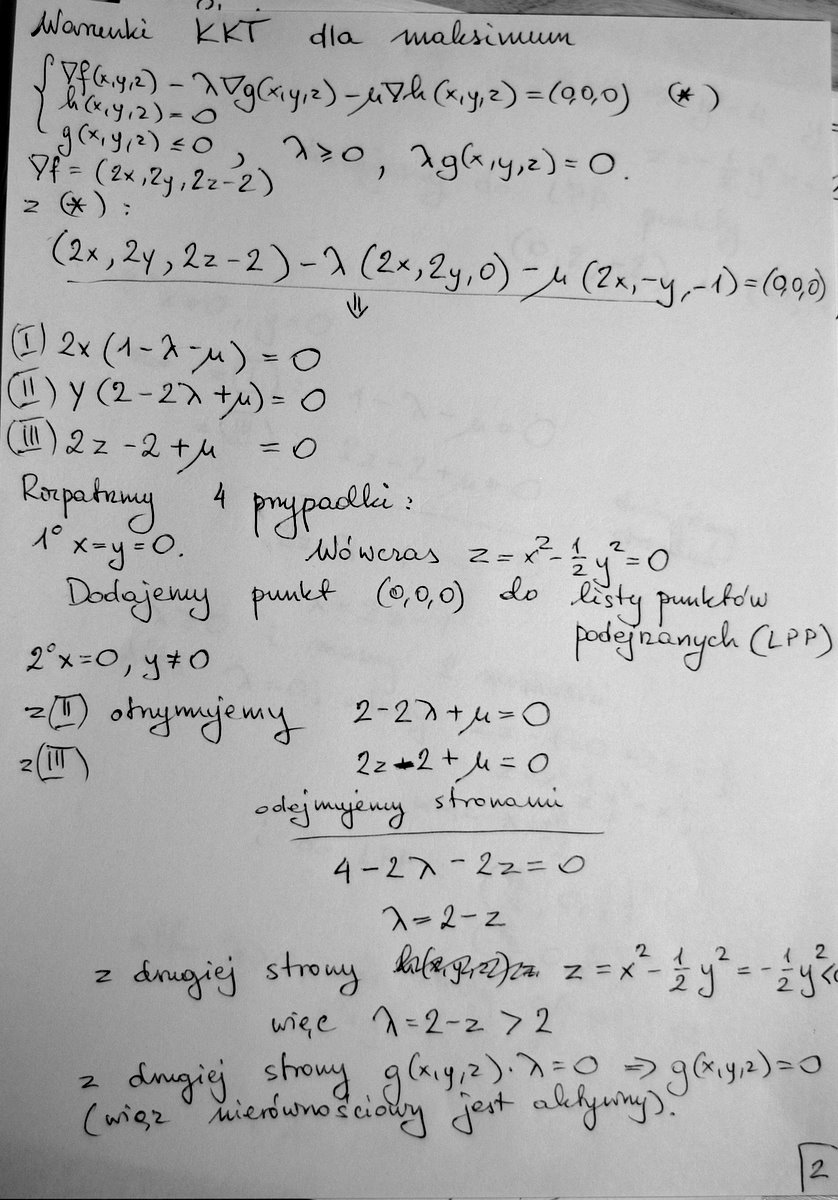 Warunki KKT dla maksimum
∇f(x,y,z) - λ∇g(x,y,z) - μ∇h(x,y,z) = (0,0,0) (*)
h(x,y,z) = 0
g(x,y,z) ≤ 0, λ ≥ 0, λg(x,y,z) = 0.
∇f = (2x, 2y, 2z-2)
z (*):
(2x, 2y, 2z-2) - λ(2x, 2y, 0) - μ(2x, -y, -1) = (0,0,0)
⇓
(I) 2x(1-λ-μ) = 0
(II) y(2-2λ+μ) = 0
(III) 2z-2+μ = 0
Rozpatrzmy 4 przypadki:
1° x=y=0. Wówczas z = x² - ½y² = 0
Dodajemy punkt (0,0,0) do listy punktów
podejrzanych (LPP)
2° x=0, y≠0
z (II) otrzymujemy 2-2λ+μ = 0
z (III) 2z-2+μ = 0
odejmujemy stronami
4-2λ-2z = 0
λ = 2-z
z drugiej strony z = x² - ½y² = -½y² <0
więc λ = 2-z > 2
z drugiej strony g(x,y,z)·λ = 0 ⇒ g(x,y,z) = 0
(więz nierównościowy jest aktywny).
2